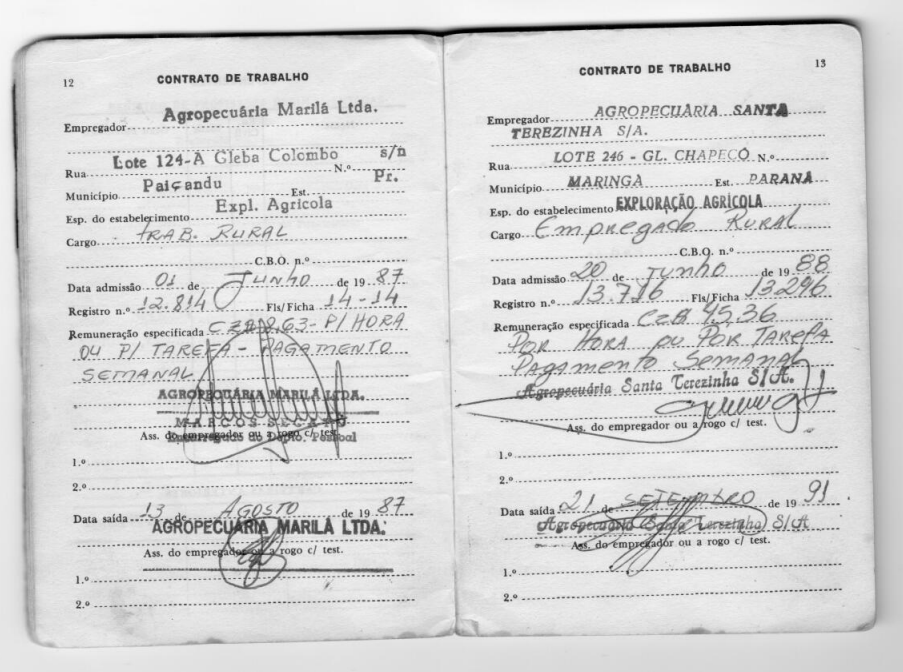 12
CONTRATO DE TRABALHO
Agropecuária Marilá Ltda.
Empregador
Lote 124-A Gleba Colombo s/n
Rua N.º
Paiçandu Pr.
Município Est.
Expl. Agrícola
Esp. do estabelecimento
Cargo TRAB. RURAL
C.B.O. n.º
Data admissão 01 de JUNHO de 19 87
Registro n.º 12.814 Fls/Ficha 14-14
Remuneração especificada 63- P/ HORA
OU P/ TAREFA - PAGAMENTO
SEMANAL
AGROPECUÁRIA MARILÁ LTDA.
MARCOS
Encarregado do Depto. Pessoal
Ass. do empregador ou a rogo c/ test.
1.º
2.º
Data saída 13 de AGOSTO de 19 87
AGROPECUÁRIA MARILÁ LTDA.
Ass. do empregador ou a rogo c/ test.
1.º
2.º
13
CONTRATO DE TRABALHO
Empregador AGROPECUÁRIA SANTA
TEREZINHA S/A.
Rua LOTE 246 - GL. CHAPECÓ N.º
Município MARINGÁ Est. PARANÁ
Esp. do estabelecimento EXPLORAÇÃO AGRÍCOLA
Cargo Empregado RURAL
C.B.O. n.º
Data admissão 20 de Junho de 19 88
Registro n.º 13.716 Fls/Ficha 13296
Remuneração especificada 95,36
POR HORA OU POR TAREFA
PAGAMENTO SEMANAL
Agropecuária Santa Terezinha S/A.
Ass. do empregador ou a rogo c/ test.
1.º
2.º
Data saída 21 de SETEMBRO de 19 91
Agropecuária Santa Terezinha S/A
Ass. do empregador ou a rogo c/ test.
1.º
2.º